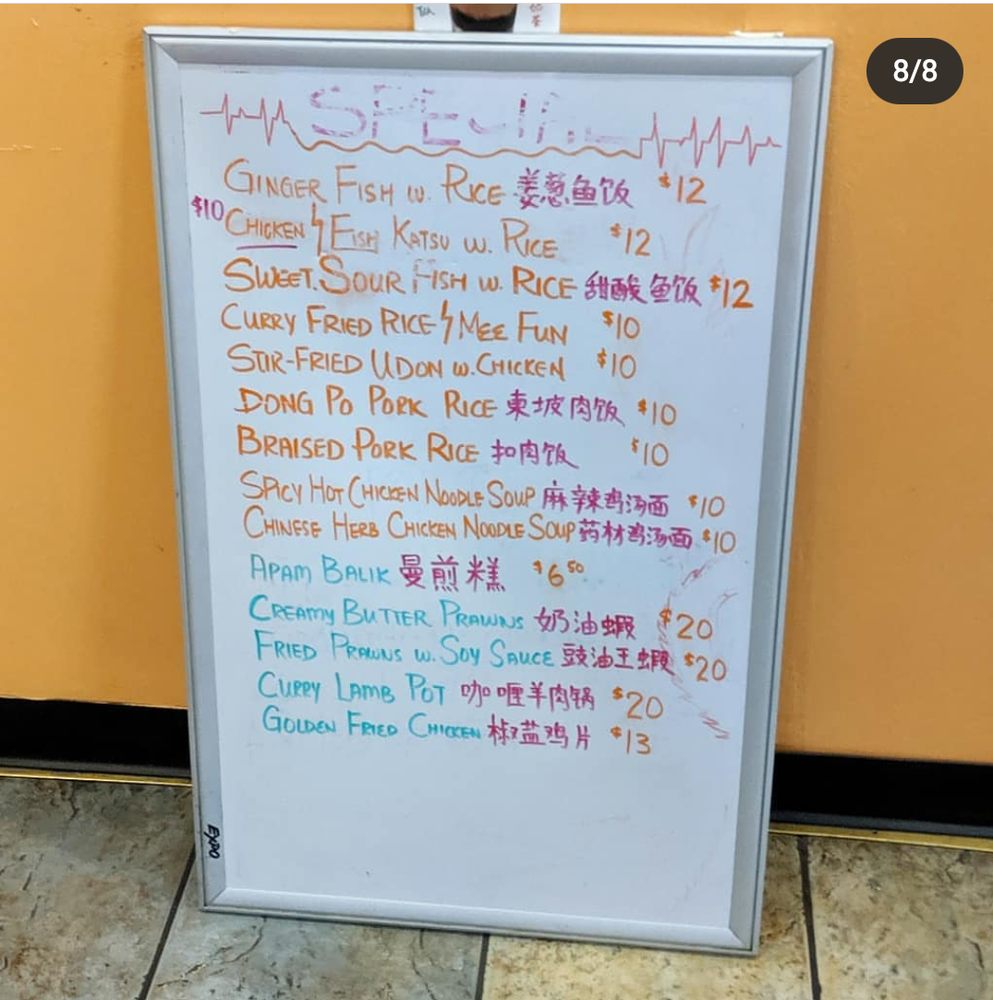 8/8
SPECIAL
GINGER FISH W. RICE 姜葱鱼饭 $12
$10 CHICKEN / FISH KATSU W. RICE $12
SWEET.SOUR FISH W. RICE 甜酸鱼饭 $12
CURRY FRIED RICE / MEE FUN $10
STIR-FRIED UDON W. CHICKEN $10
DONG PO PORK RICE 東坡肉饭 $10
BRAISED PORK RICE 扣肉饭 $10
SPICY HOT CHICKEN NOODLE SOUP 麻辣鸡汤面 $10
CHINESE HERB CHICKEN NOODLE SOUP 药材鸡汤面 $10
APAM BALIK 曼煎糕 $6.50
CREAMY BUTTER PRAWNS 奶油蝦 $20
FRIED PRAWNS W. SOY SAUCE 豉油王蝦 $20
CURRY LAMB POT 咖喱羊肉锅 $20
GOLDEN FRIED CHICKEN 椒盐鸡片 $13
EXPO